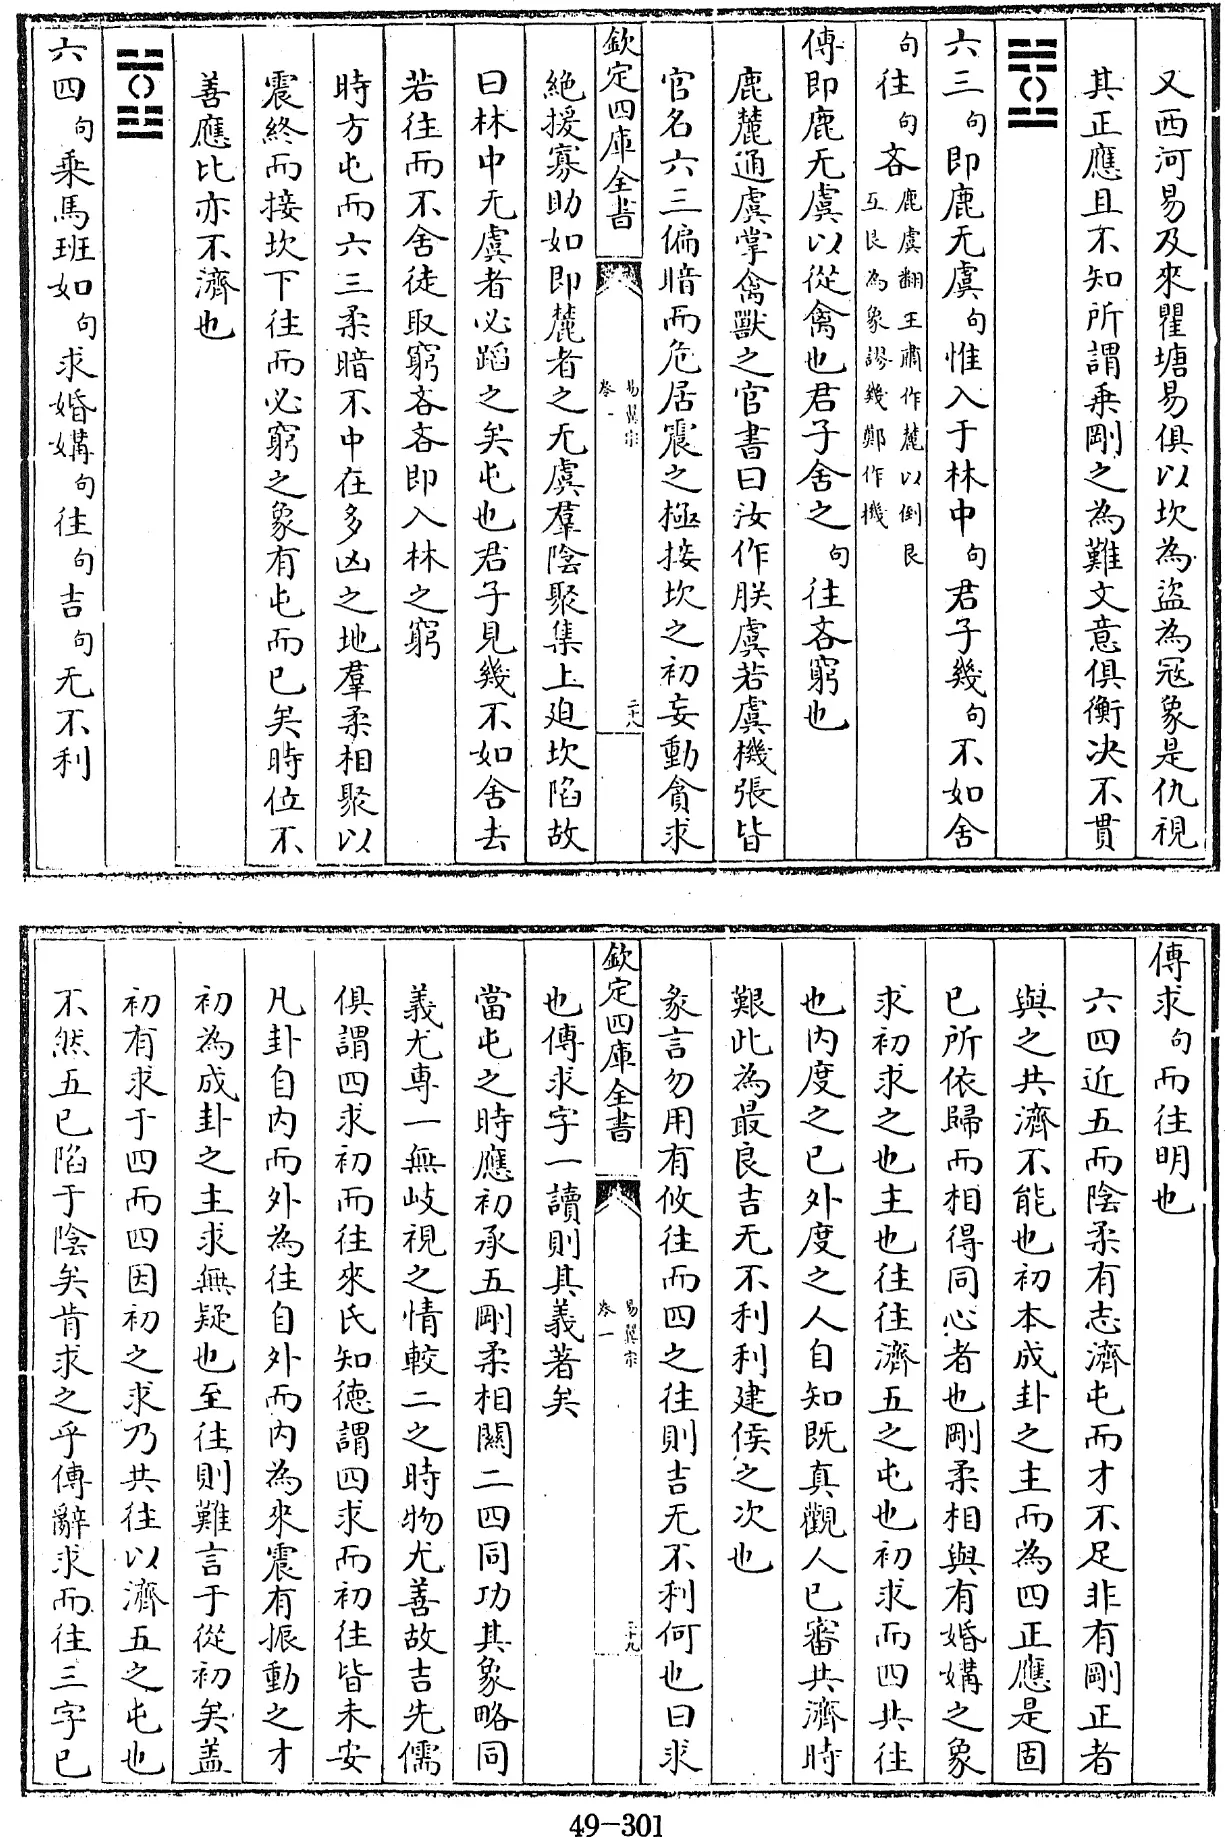 又西河易及來瞿塘易俱以坎為盜為冦象是仇視
其正應且不知所謂乗剛之為難文意俱衡决不貫
六三句即鹿无虞句惟入于林中句君子幾句不如舍
句往句吝鹿虞翻王肅作麓以倒艮
互艮為象謬幾鄭作機
傳即鹿无虞以從禽也君子舍之句往吝窮也
鹿麓通虞掌禽獸之官書曰汝作朕虞若虞機張皆
官名六三偏暗而危居震之極接坎之初妄動貪求
欽定四庫全書
易翼宗
卷一
二十八
絶援寡助如即麓者之无虞羣陰聚集上廹坎陷故
曰林中无虞者必蹈之矣屯也君子見幾不如舍去
若往而不舍徒取窮吝吝即入林之窮
時方屯而六三柔暗不中在多凶之地羣柔相聚以
震終而接坎下往而必窮之象有屯而已矣時位不
善應比亦不濟也
六四句乗馬班如句求婚媾句往句吉句无不利
傳求句而往明也
六四近五而陰柔有志濟屯而才不足非有剛正者
與之共濟不能也初本成卦之主而為四正應是固
已所依歸而相得同心者也剛柔相與有婚媾之象
求初求之也主也往往濟五之屯也初求而四共往
也内度之已外度之人自知既真觀人已審共濟時
艱此為最良吉无不利利建侯之次也
彖言勿用有攸往而四之往則吉无不利何也曰求
欽定四庫全書
易翼宗
卷一
二十九
也傳求字一讀則其義著矣
當屯之時應初承五剛柔相關二四同功其象略同
義尤專一無岐視之情較二之時物尤善故吉先儒
俱謂四求初而往來氏知德謂四求而初往皆未安
凡卦自内而外為往自外而内為來震有振動之才
初為成卦之主求無疑也至往則難言于從初矣盖
初有求于四而四因初之求乃共往以濟五之屯也
不然五已陷于陰矣肯求之乎傳辭求而往三字已
49-301